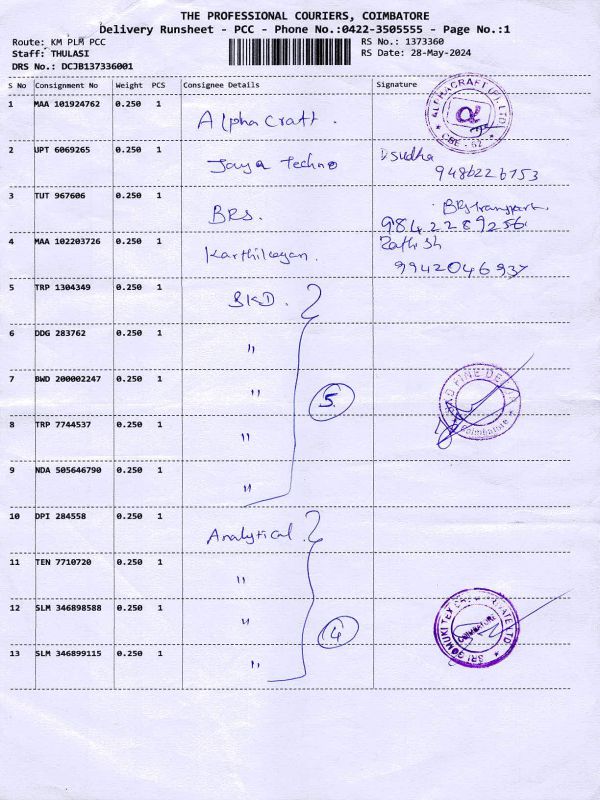 THE PROFESSIONAL COURIERS, COIMBATORE
Delivery Runsheet - PCC - Phone No.:0422-3505555 - Page No.:1
Route: KM PLM PCC RS No.: 1373360
Staff: THULASI RS Date: 28-May-2024
DRS No.: DCJB137336001
S No Consignment No Weight PCS Consignee Details Signature
1 MAA 101924762 0.250 1 Alpha Craft. ALPHACRAFT (P) LTD. CBE - 62
2 UPT 6069265 0.250 1 Jaya Techno D Sudha
9486226753
3 TUT 967606 0.250 1 BRS. BRS transport
9842289256
4 MAA 102203726 0.250 1 Karthikeyan.
9942046937
5 TRP 1304349 0.250 1 BKD.
6 DDG 283762 0.250 1 "
7 BWD 200002247 0.250 1 " 5 Coimbatore
8 TRP 7744537 0.250 1 "
9 NDA 505646790 0.250 1 "
10 DPI 284558 0.250 1 Analytical.
11 TEN 7710720 0.250 1 "
12 SLM 346898588 0.250 1 " 4 COIMBATORE
13 SLM 346899115 0.250 1 "